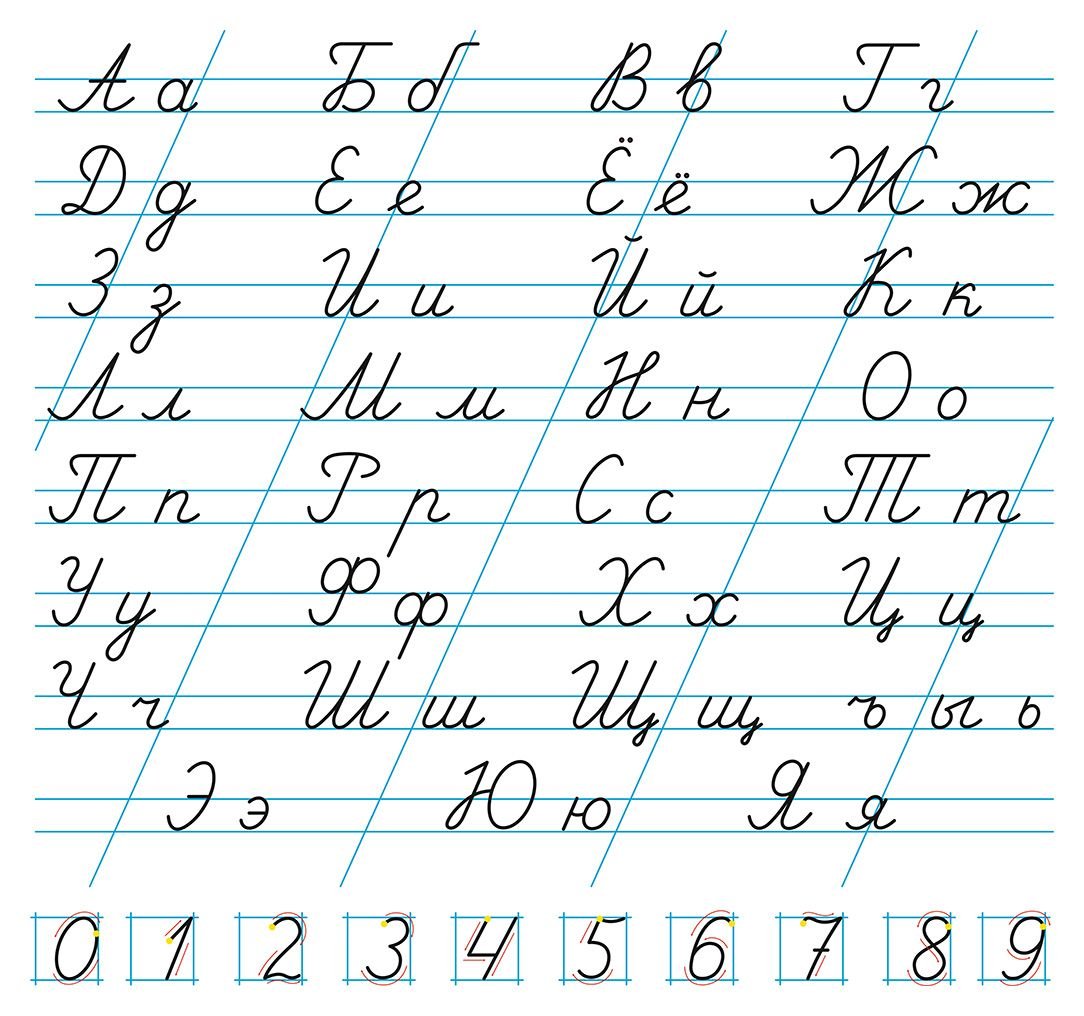 А а Б б В в Г г
Д д Е е Ё ё Ж ж
З з И и Й й К к
Л л М м Н н О о
П п Р р С с Т т
У у Ф ф Х х Ц ц
Ч ч Ш ш Щ щ ъ ы ь
Э э Ю ю Я я
0 1 2 3 4 5 6 7 8 9